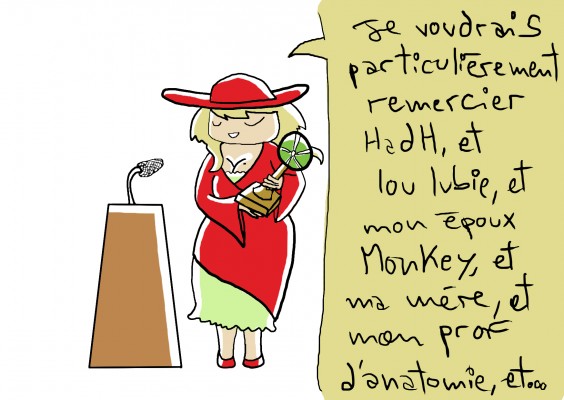 Je voudrais
particulièrement
remercier
HadH, et
lou lubie, et
mon époux
Monkey, et
ma mère, et
mon prof
d'anatomie, et...